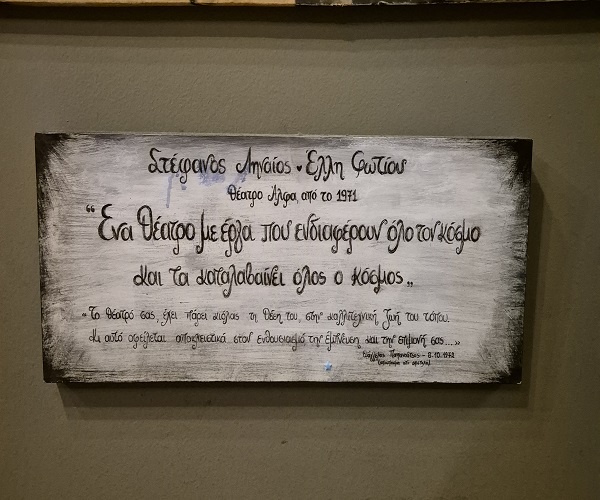 Στέφανος Ληναίος • Έλλη Φωτίου
Θέατρο Άλφα, από το 1971
“ Ένα Θέατρο με έργα που ενδιαφέρουν όλο τον κόσμο
και τα καταλαβαίνει όλος ο κόσμος „
« Το Θέατρό σας, έχει πάρει κιόλας τη θέση του, στην καλλιτεχνική ζωή του τόπου.
Κι αυτό οφείλεται αποκλειστικά στον ενθουσιασμό την έμπνευση και την επιμονή σας....»
Ευάγγελος Παπανούτσος - 8.10.1972